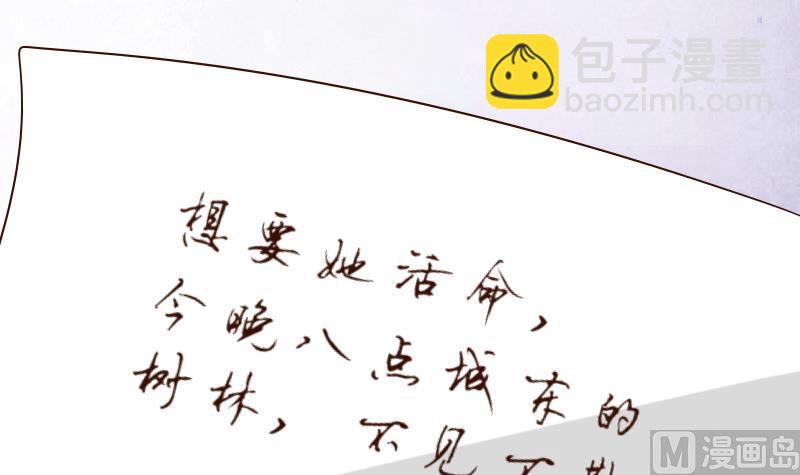 包子漫畫
baozimh.com
想要她活命，
今晚八点城东的
树林，不见不
M 漫画岛